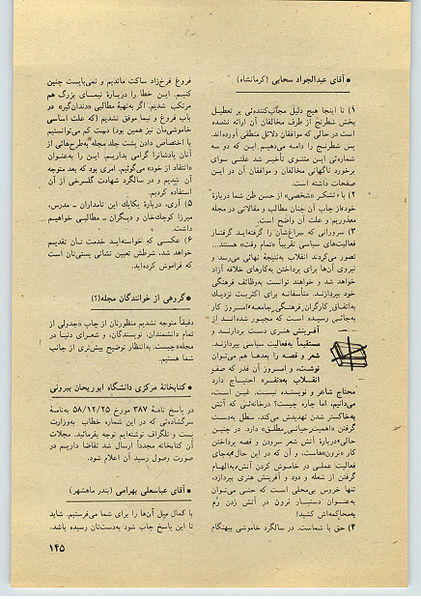 • آقای عبدالجواد سحابی (کرمانشاه)
۱) تا اینجا هیچ دلیل مجاب‌کننده‌ئی بر تعطیل
بخش شطرنج از طرف مخالفان آن ارائه نشده
است در حالی که موافقان دلائل منطقی آورده‌اند.
پس شطرنج را ادامه می‌دهیم. این که دو سه
شماره‌ئی این مثنوی تأخیر شد علتی سوای
برخورد ناگهانی مخالفان و موافقان آن در این
صفحات داشته است.
۲) با «تشکر» «شخصی» از حسن ظن شما دربارهٔ
خود، از چاپ آن چنان مطالب و مقالاتی در مجله
معذوریم، و علت آن واضح است.
۳) سرورانی که سراغ‌شان را گرفته‌اید گرفتار
فعالیت‌های سیاسی تقریباً «تمام وقت» هستند...
تصور می‌کردند انقلاب به‌نتیجهٔ نهائی می‌رسد و
نیروی آن‌ها برای پرداختن به‌کارهای خلاقه آزاد
خواهد شد و خواهند توانست به‌وظائف فرهنگی
خود بپردازند. متأسفانه برای اکثریت نزدیک
به‌اتفاق کارگران فرهنگی جامعه، امروز کار
به‌جائی رسیده است که مجبور شده‌اند از
آفرینش هنری دست بردارند و
مستقیماً به‌فعالیت سیاسی بپردازند.
شعر و قصه را بعدها هم می‌توان
نوشت، و امروز آن قدر که صفر
انقلاب به‌«نفر» احتیاج دارد
محتاج شاعر و نویسنده نیست. غبن است،
می‌دانیم، اما چاره چیست؟ درخانه‌ئی که آتش
به‌خاکستر شدن تهدیدش می‌کند، سطل به‌دست
گرفتن «اهمیت حیاتی مطلق» دارد. در چنین
حالی دربارهٔ آتش شعر سرودن و قصه پرداختن
کار «نرون»هاست، و آن که در این حال به‌جای
فعالیت عملی در خاموش کردن آتش به‌الهام
گرفتن از شعله و دود و آفرینش هنری بپردازد،
تنها خروس بی‌محلی است که حتی می‌توان
به‌عنوان دستیار نرون در آتش زدن رُم
به‌محاکمه‌اش کشید!
۴) حق با شماست. در سالگرد خاموشی پیهنگام
فروغ فرخ‌زاد ساکت ماندیم و نمی‌بایست چنین
کنیم. این خطا را دربارهٔ نیمای بزرگ هم
مرتکب شدیم. اگر به‌تهیهٔ مطالبی «دندان‌گیر» در
باب فروغ و نیما موفق نشدیم (که علت اساسی
خاموشی‌مان نیز همین بود) دست کم می‌توانستیم
با اختصاص دادن پشت جلد مجله به‌طرح‌هائی از
آنان یادشان‌را گرامی بداریم. این را به‌عنوان
«انتقاد از خود» می‌گوئیم. امری بود که بعد متوجه
آن شدیم و در سالگرد شهادت گلسرخی از آن
استفاده کردیم.
۵) آری، دربارهٔ یکایک این نامداران ـ مدرس،
میرزا کوچک‌خان و دیگران ـ مطالبی خواهیم
داشت.
۶) عکسی که خواسته‌اید خدمت تان تقدیم
خواهد شد، شرطش تعیین نشانی پستی‌تان است
که فراموش کرده‌اید.
• گروهی از خوانندگان مجله(!)
دقیقاً متوجه نشدیم منظورتان از چاپ «جدولی از
تمام دانشمندان، نویسندگان، و شعرای دنیا در
مجله» چیست. به‌انتظار توضیح بیش‌تری از جانب
شما هستیم.
• کتابخانهٔ مرکزی دانشگاه ابوریحان بیرونی
در پاسخ نامهٔ ۳۸۷ مورخ ۵۸/۱۲/۲۵ به‌نامهٔ
سرگشاده‌ئی که در این شماره خطاب به‌وزارت
پست و تلگراف نوشته‌ایم توجه بفرمائید. مجلات
آن کتابخانه مجدداً ارسال شد تقاضا داریم در
صورت وصول رسید آن اعلام شود.
• آقای عباسعلی بهرامی (بندر ماهشهر)
با کمال میل آن‌ها را برای شما می‌فرستیم. شاید
تا این پاسخ چاپ شود به‌دست‌تان رسیده باشد.
۱۴۵